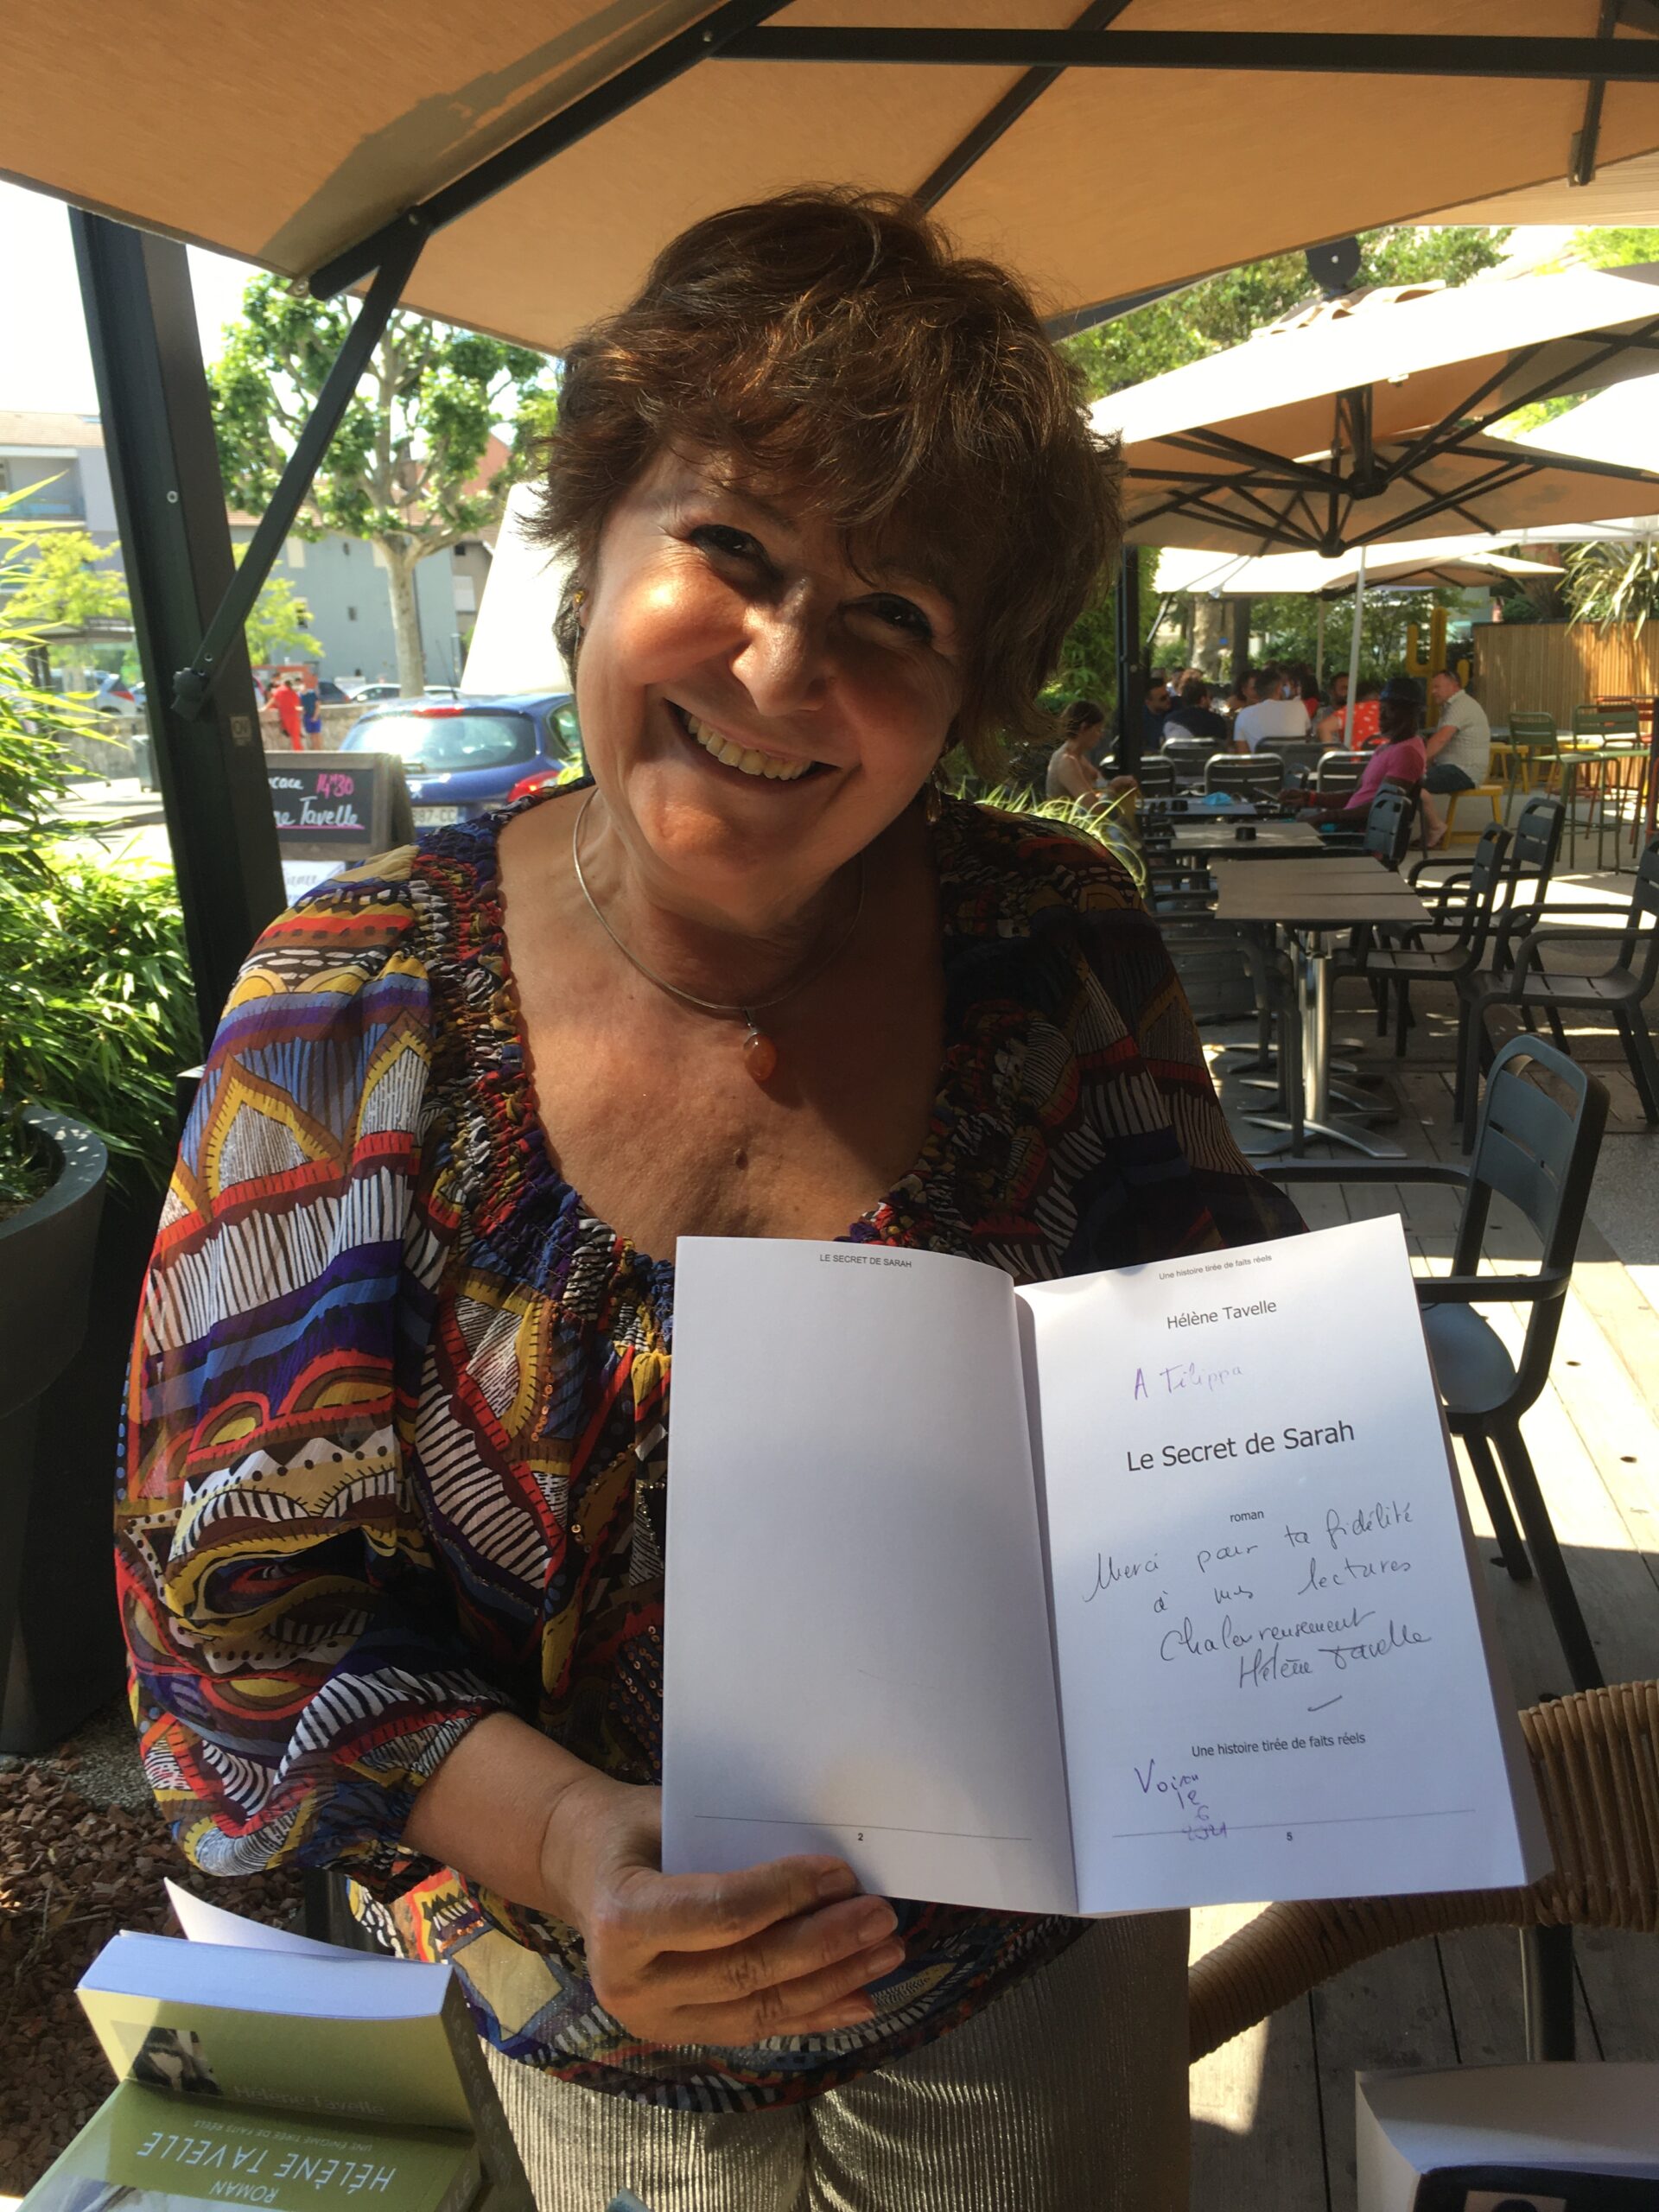 14H30
Tavelle
LE SECRET DE SARAH
2
Une histoire tirée de faits réels
Hélène Tavelle
A Filippa
Le Secret de Sarah
roman
Merci pour ta fidélité
à mes lectures
Chaleureusement
Hélène Tavelle
Une histoire tirée de faits réels
Voiron
12
6
2021
5
Hélène Tavelle
UNE ÉNIGME TIRÉE DE FAITS RÉELS
HÉLÈNE TAVELLE
ROMAN